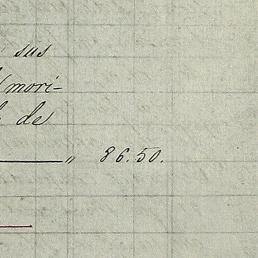 sus
mori-
de
" 86.50.